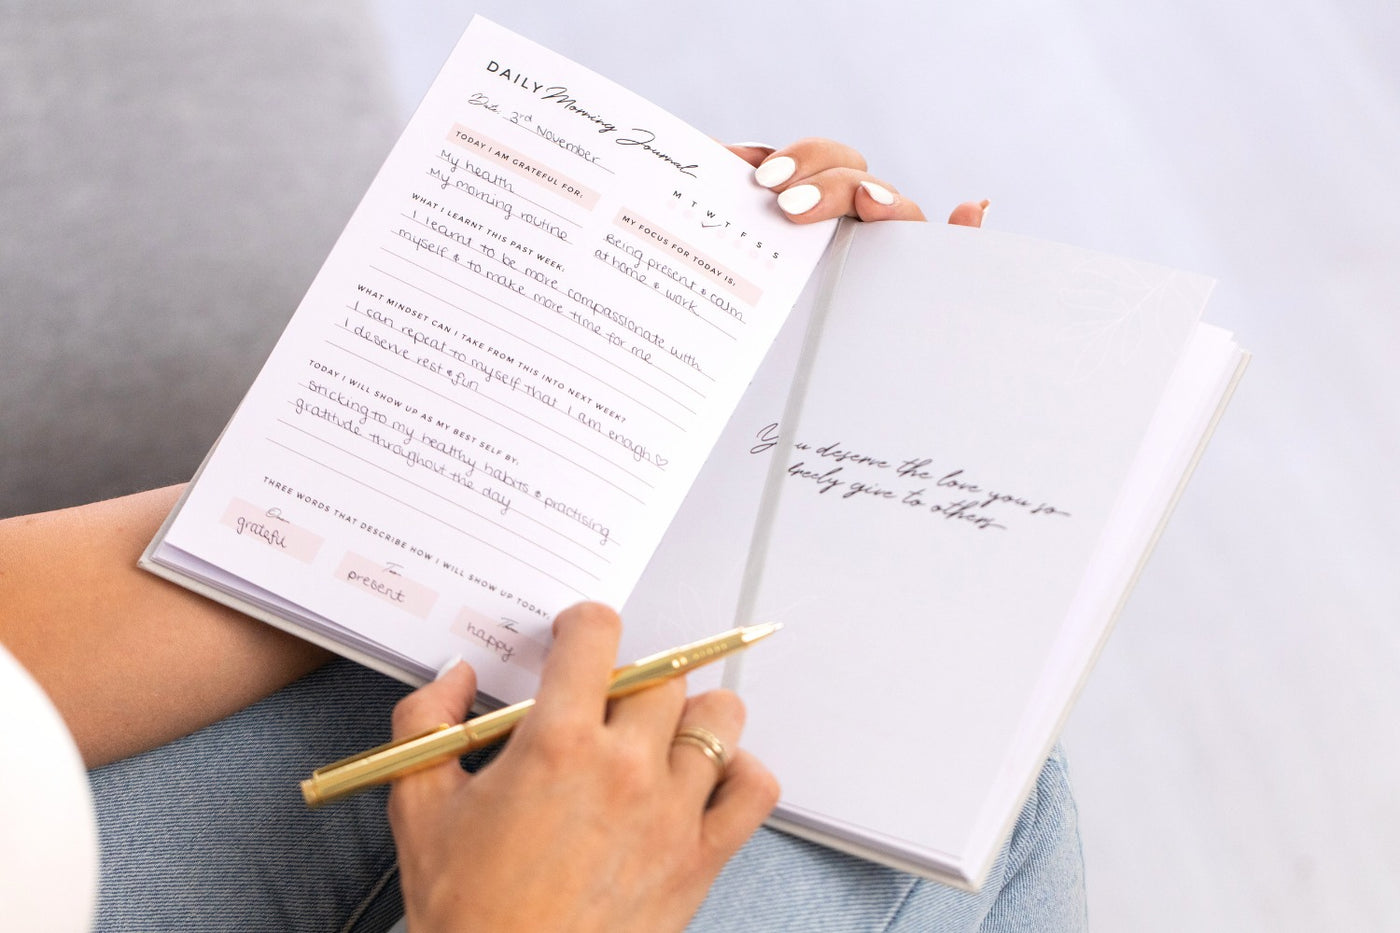 DAILY Morning Journal
Date: 3rd November
M T W T F S S
TODAY I AM GRATEFUL FOR:
My health
My morning routine
MY FOCUS FOR TODAY IS:
Being present & calm
at home & work
WHAT I LEARNT THIS PAST WEEK:
I learnt to be more compassionate with
myself & to make more time for me
WHAT MINDSET CAN I TAKE FROM THIS INTO NEXT WEEK?
I can repeat to myself that I am enough ♡
I deserve rest & fun
TODAY I WILL SHOW UP AS MY BEST SELF BY:
sticking to my healthy habits & practising
gratitude throughout the day
THREE WORDS THAT DESCRIBE HOW I WILL SHOW UP TODAY:
One
grateful
Two
present
Three
happy
You deserve the love you so
freely give to others